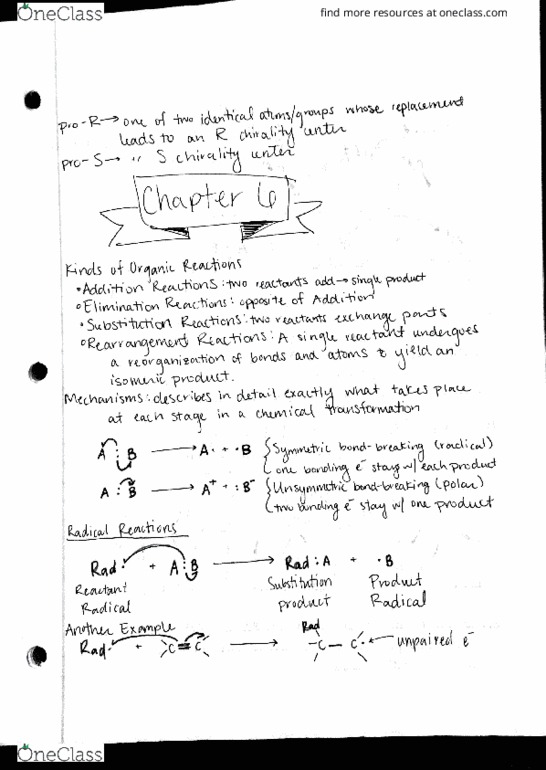 OneClass
find more resources at oneclass.com
pro-R → one of two identical atoms/groups whose replacement
leads to an R chirality center
pro-S → " S chirality center
Chapter 6
Kinds of Organic Reactions
• Addition Reactions: two reactants add → single product
• Elimination Reactions: opposite of Addition
• Substitution Reactions: two reactants exchange parts
• Rearrangement Reactions: A single reactant undergoes
a reorganization of bonds and atoms to yield an
isomeric product.
Mechanisms: describes in detail exactly what takes place
at each stage in a chemical transformation
A : B → A· + ·B { Symmetric bond-breaking (radical)
one bonding e⁻ stay w/ each product
A : B → A⁺ + :B⁻ { Unsymmetric bond-breaking (polar)
two bonding e⁻ stay w/ one product
Radical Reactions
Rad· + A:B → Rad:A + ·B
Reactant Radical
Substitution product
Product Radical
Another Example
Rad· + C=C → Rad C–C· ← unpaired e⁻
OneClass